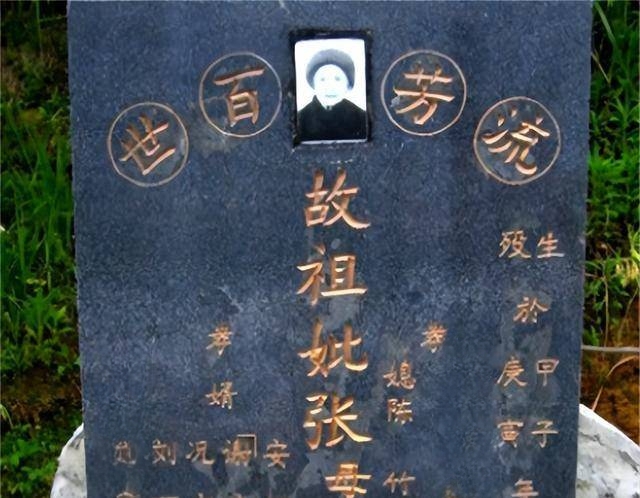 流芳百世
生殁
於
甲子
庚寅
年
孝
媳陈竹
故祖妣张母
孝婿
安
谢
况
刘